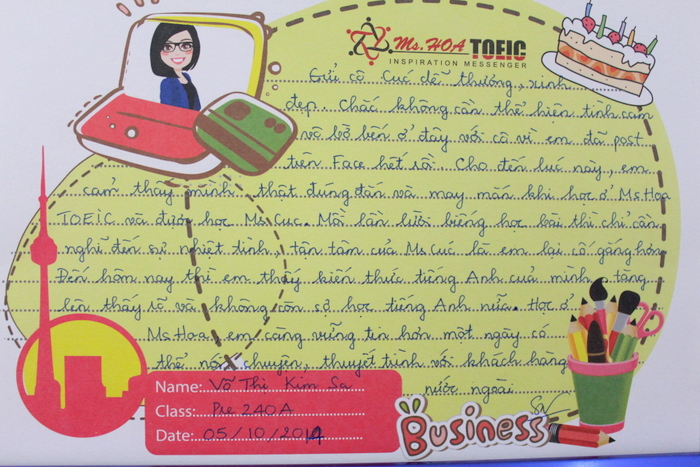 Ms. HOA TOEIC
INSPIRATION MESSENGER
Gửi cô Cúc dễ thương, xinh
đẹp. Chắc không cần thể hiện tình cảm
vô bờ bến ở đây với cô vì em đã post
trên Face hết rồi. Cho đến lúc này, em
cảm thấy mình thật đúng đắn và may mắn khi học ở Ms Hoa
TOEIC và được học Ms. Cúc. Mỗi lần lười biếng học bài thì chỉ cần
nghĩ đến sự nhiệt tình, tận tâm của Ms Cúc là em lại cố gắng hơn
Đến hôm nay thì em thấy kiến thức tiếng Anh của mình tăng
lên thấy rõ và không còn sợ học tiếng Anh nữa. Học ở
Ms Hoa em càng vững tin hơn một ngày có
thể nói chuyện, thuyết trình với khách hàng
nước ngoài
Sa
Name: Võ Thị Kim Sa
Class: Pre 240A
Date: 05/10/2019
BUSINESS